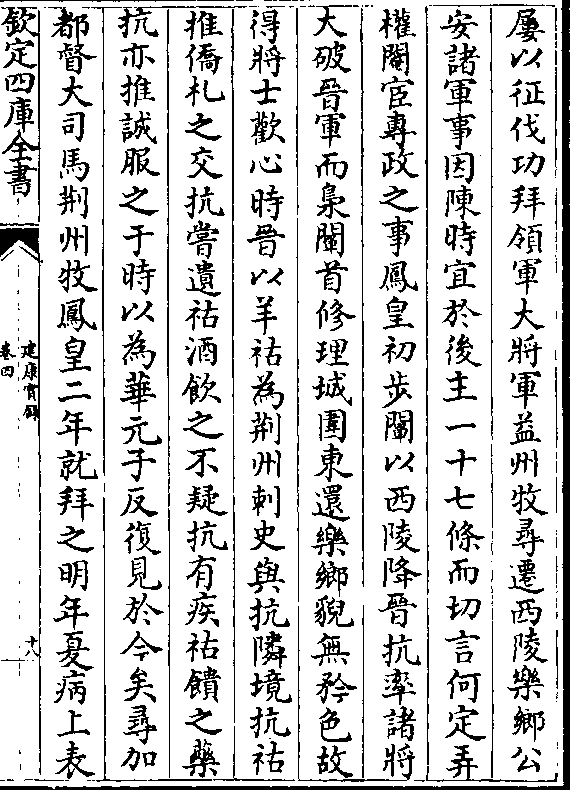 屢以征伐功拜領軍大將軍益州牧尋遷西陵樂鄉公
安諸軍事因陳時宜於後主一十七條而切言何定弄
權閹宦專政之事鳳皇初步闡以西陵降晉抗率諸將
大破晉軍而梟闡首修理城圍東還樂鄉貌無矜色故
得將士歡心時晉以羊祜為荆州刺史與抗隣境抗祜
推僑札之交抗嘗遺祜酒飲之不疑抗有疾祜饋之藥
抗亦推誠服之于時以為華元子反復見於今矣尋加
都督大司馬荆州牧鳳皇二年就拜之明年夏病上表
欽定四庫全書
建康實錄
卷四
十八